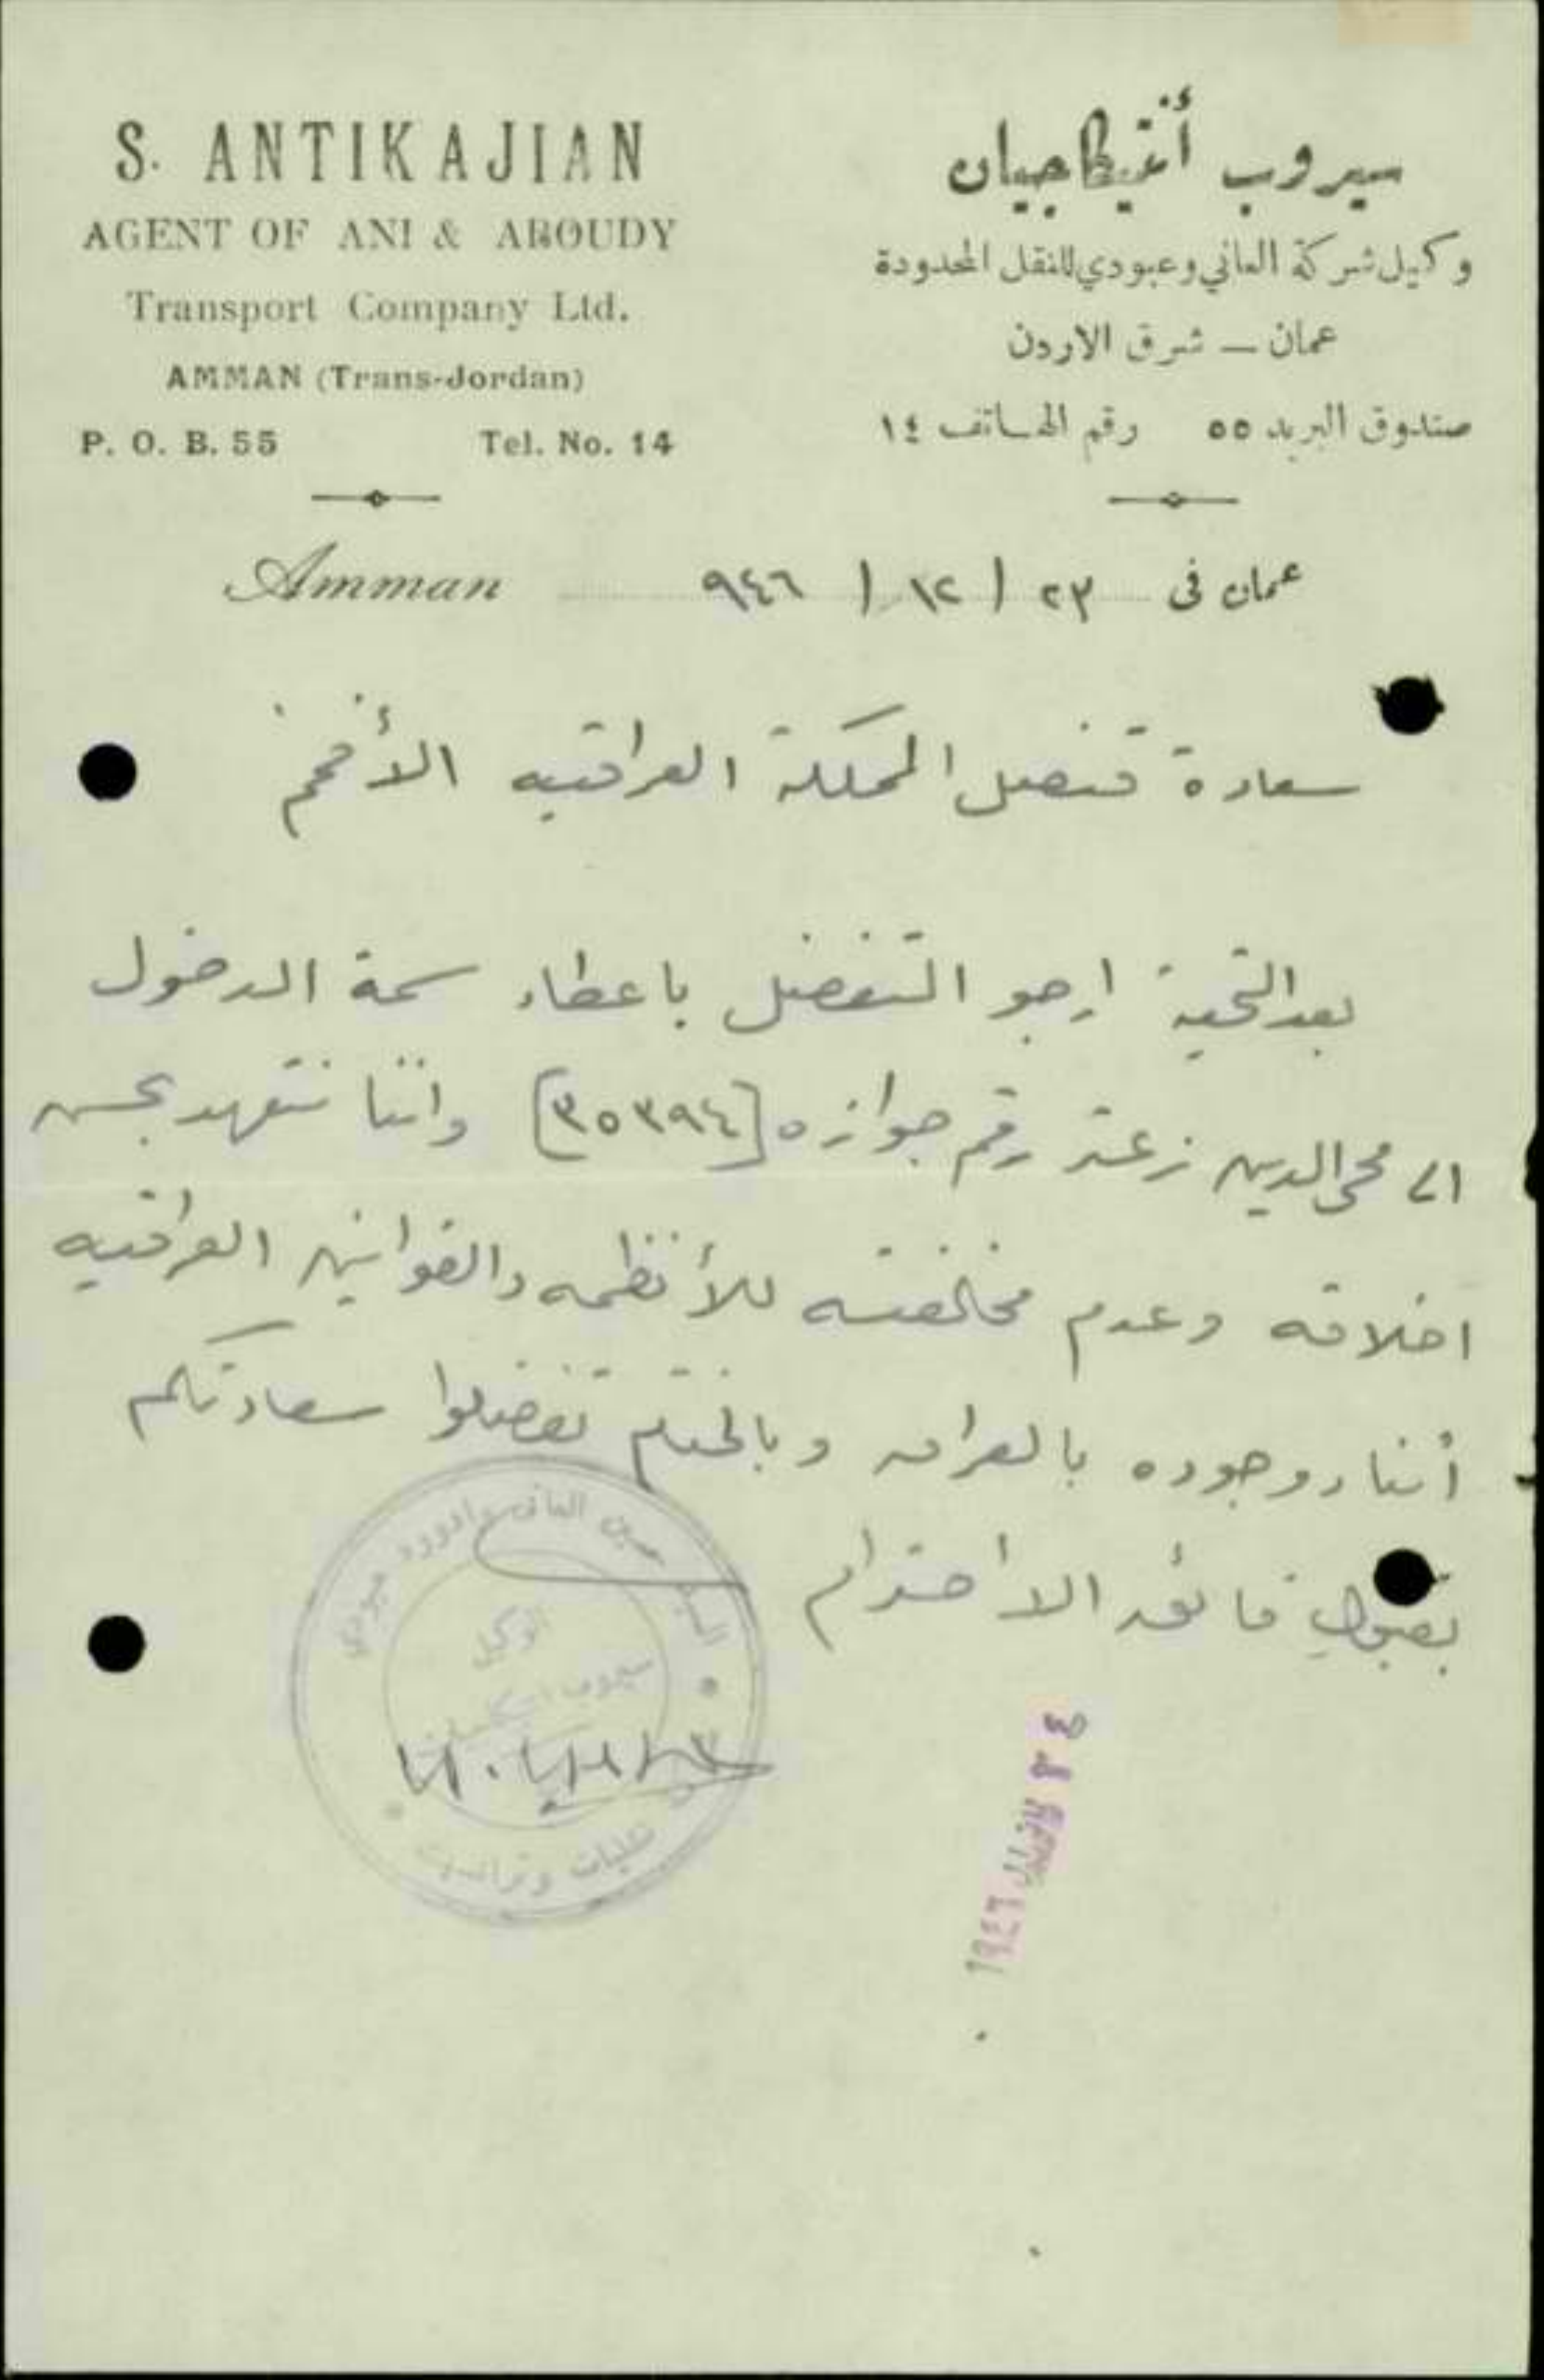 S. ANTIKAJIAN
AGENT OF ANI & ABOUDY
Transport Company Ltd.
AMMAN (Trans-Jordan)
P. O. B. 55 Tel. No. 14
سيروب أنتيكاجيان
وكيل شركة العاني وعبودي للنقل المحدودة
عمان — شرق الاردن
صندوق البريد ٥٥ رقم الهاتف ١٤
Amman
عمان فى ٢٣ / ١٢ / ٩٤٦
سعادة قنصل المملكة العراقيه الأفخم
بعد التحية ارجو التفضل باعطاء سمة الدخول
الى محي الدين زعتر رقم جوازه [٣٥٣٩٤] واننا نتعهد بحسن
اخلاقه وعدم مخالفته للأنظمه والقوانين العراقيه
أثناء وجوده بالعراق وبالختام تفضلوا سعادتكم
بقبول فائق الاحترام
العاني
عبودي
الوكيل
سيروب
طلبات
١٩٤٦